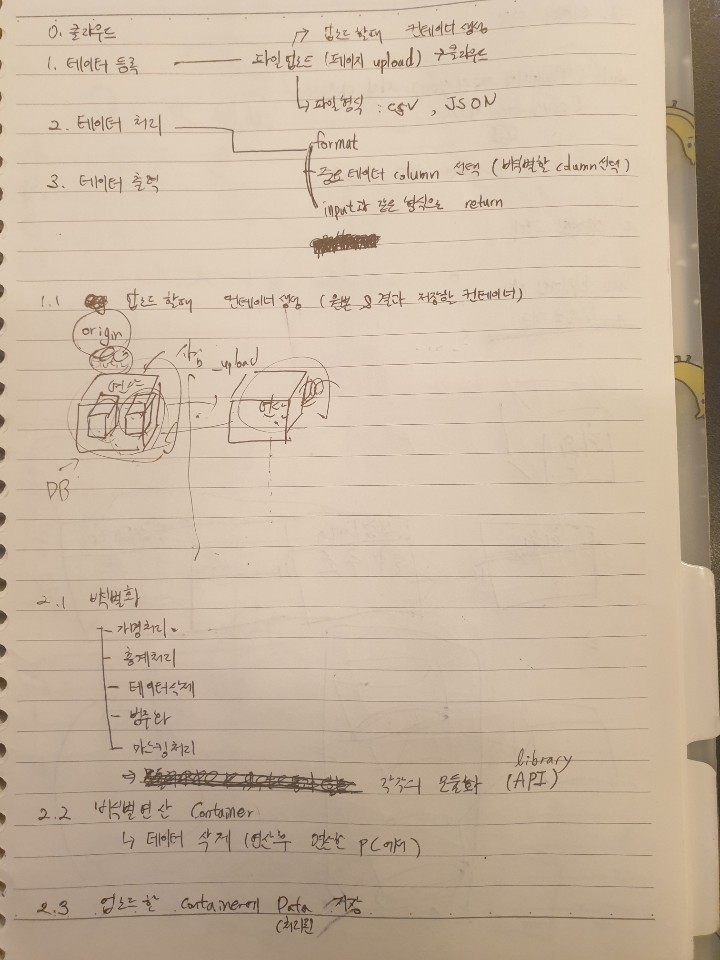 0. 클라우드
↱ 업로드 할때 컨테이너 생성
1. 데이터 등록 — 파일 업로드 (페이지 upload) → 클라우드
↳ 파일형식 : CSV , JSON
2. 데이터 처리
format
중요 데이터 column 선택 (비식별할 column 선택)
3. 데이터 출력
input과 같은 형식으로 return
1.1 업로드 할때 컨테이너 생성 (원본 & 결과 저장할 컨테이너)
origin
_upload
연산
DB
2.1 비식별화
가명처리
총계처리
데이터삭제
범주화
마스킹처리
→ 각각의 모듈화 library
(API)
2.2 비식별연산 Container
↳ 데이터 삭제 (연산후 연산한 PC에서)
2.3 업로드할 Container에 Data 저장
(처리된